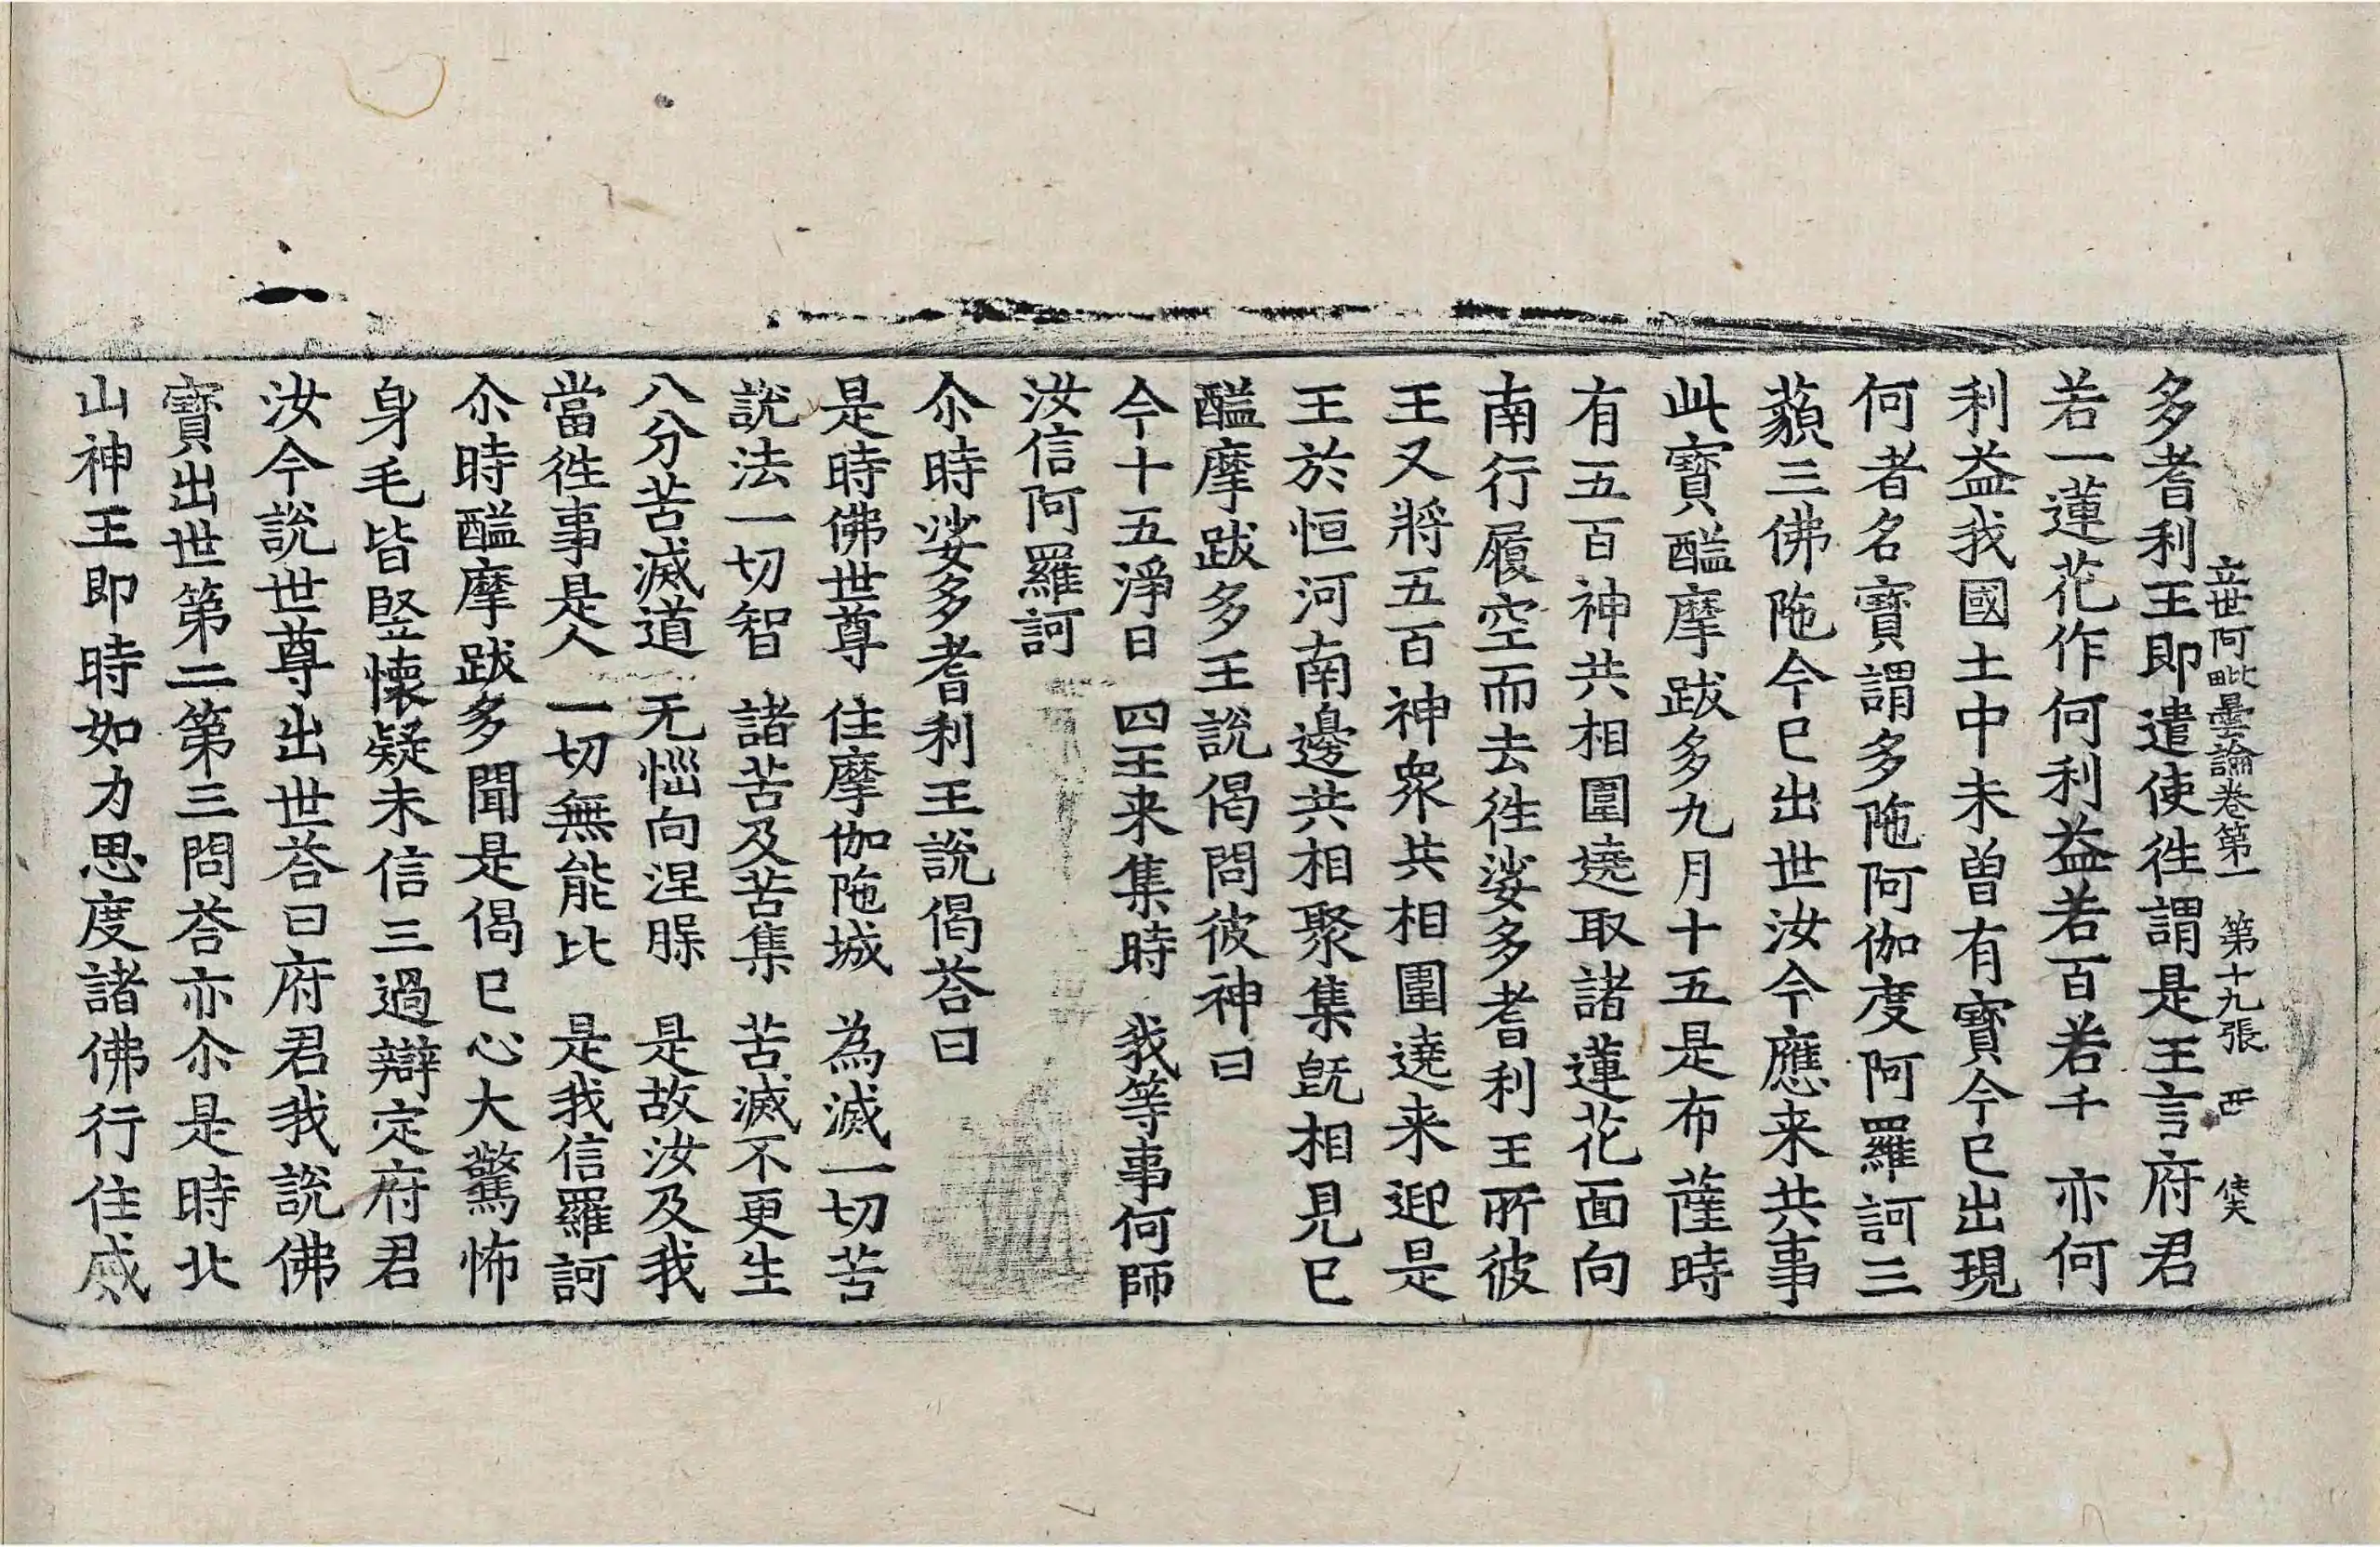 立世阿毗曇論卷第一　第十九張　西
多耆利王即遣使徃謂是王言府君
若一蓮花作何利益若百若千　亦何
利益我國土中未曾有寳今已出現
何者名寳謂多陁阿伽度阿羅訶三
藐三佛陁今已出世汝今應来共事
此寳醯摩跋多九月十五是布薩時
有五百神共相圍遶取諸蓮花面向
南行履空而去徃娑多耆利王所彼
王又將五百神衆共相圍遶来迎是
王於恒河南邊共相聚集旣相見已
醯摩跋多王說偈問彼神曰
今十五淨日　四王来集時　我等事何師
汝信阿羅訶
尒時娑多耆利王說偈荅曰
是時佛世尊　住摩伽陁城　為滅一切苦
說法一切智　諸苦及苦集　苦滅不更生
八分苦滅道　无惱向涅槃　是故汝及我
當徃事是人　一切無能比　是我信羅訶
尒時醯摩跋多聞是偈已心大驚怖
身毛皆竪懷疑未信三過辯定府君
汝今說世尊出世荅曰府君我說佛
寳出世第二第三問荅亦尒是時北
山神王即時如力思度諸佛行住威